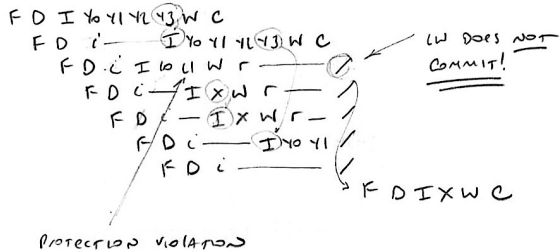 F D I Y0 Y1 Y2 Y3 W C
F D i I Y0 Y1 Y2 Y3 W C
F D i I L0 L1 W r /
F D i I X W r /
F D i I X W r /
F D i I Y0 Y1 /
F D i /
F D I X W C
LW DOES NOT
COMMIT!
PROTECTION VIOLATION